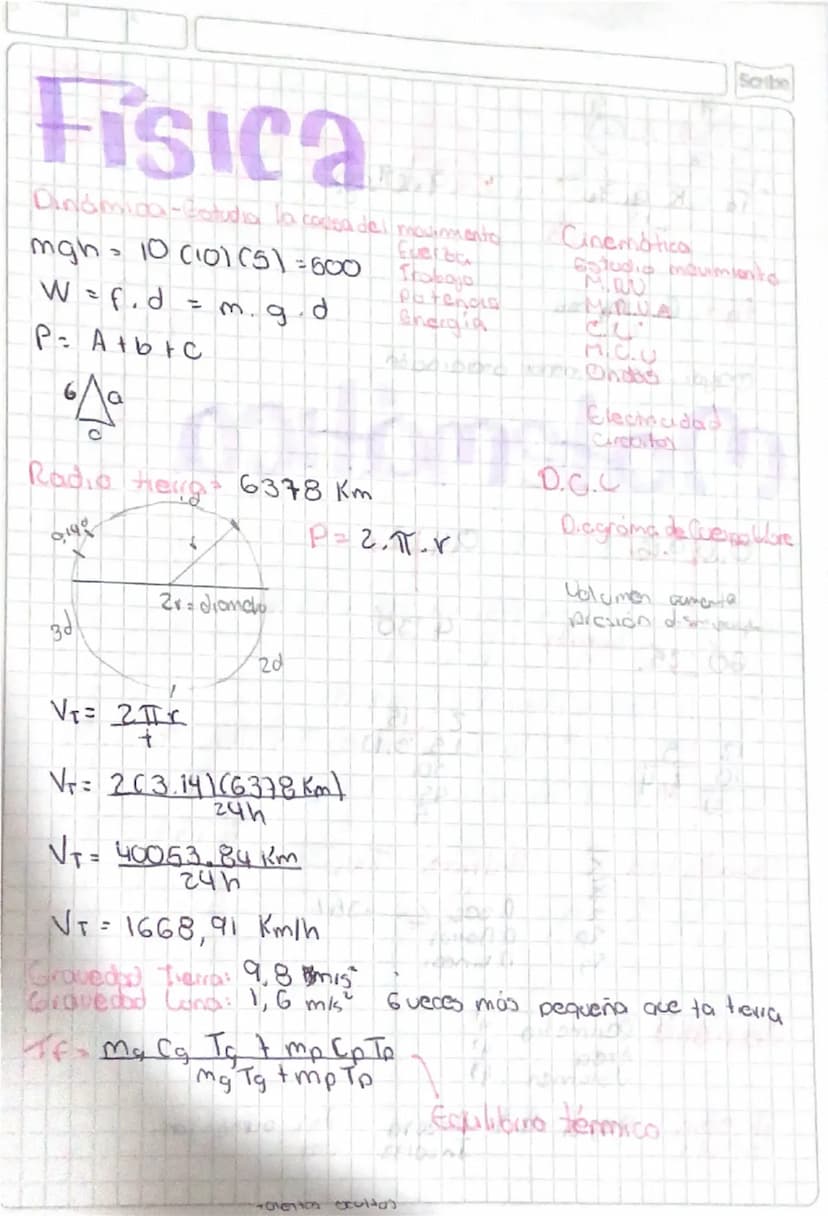 Scribe
Física
Dinámica - Estudia la causa del movimiento
mgh = 10 (10) (5) = 500
Fuerza
Trabajo
Potencia
Energía
W = f . d = m . g . d
P = A + b + c
6 a
c
Cinemática
Estudio movimiento
M.R.U
M.R.U.A
C.L
M.C.U
Ondas
Electricidad
Circuitos
Radio tierra = 6378 Km
D.C.L
Diagrama de Cuerpo libre
P = 2 . π . r
2r = diametro
3d
2d
Volumen aumenta
presión disminuye
VT = 2πr
t
VT = 2(3.14)(6378 Km)
24h
VT = 40053.84 Km
24h
VT = 1668,91 Km/h
Gravedad Tierra: 9,8 m/s²
Gravedad Luna: 1,6 m/s² 6 veces más pequeña que la tierra
Tf = mg Cg Tg + mp Cp Tp
mg Tg + mp Tp
Equilibrio térmico